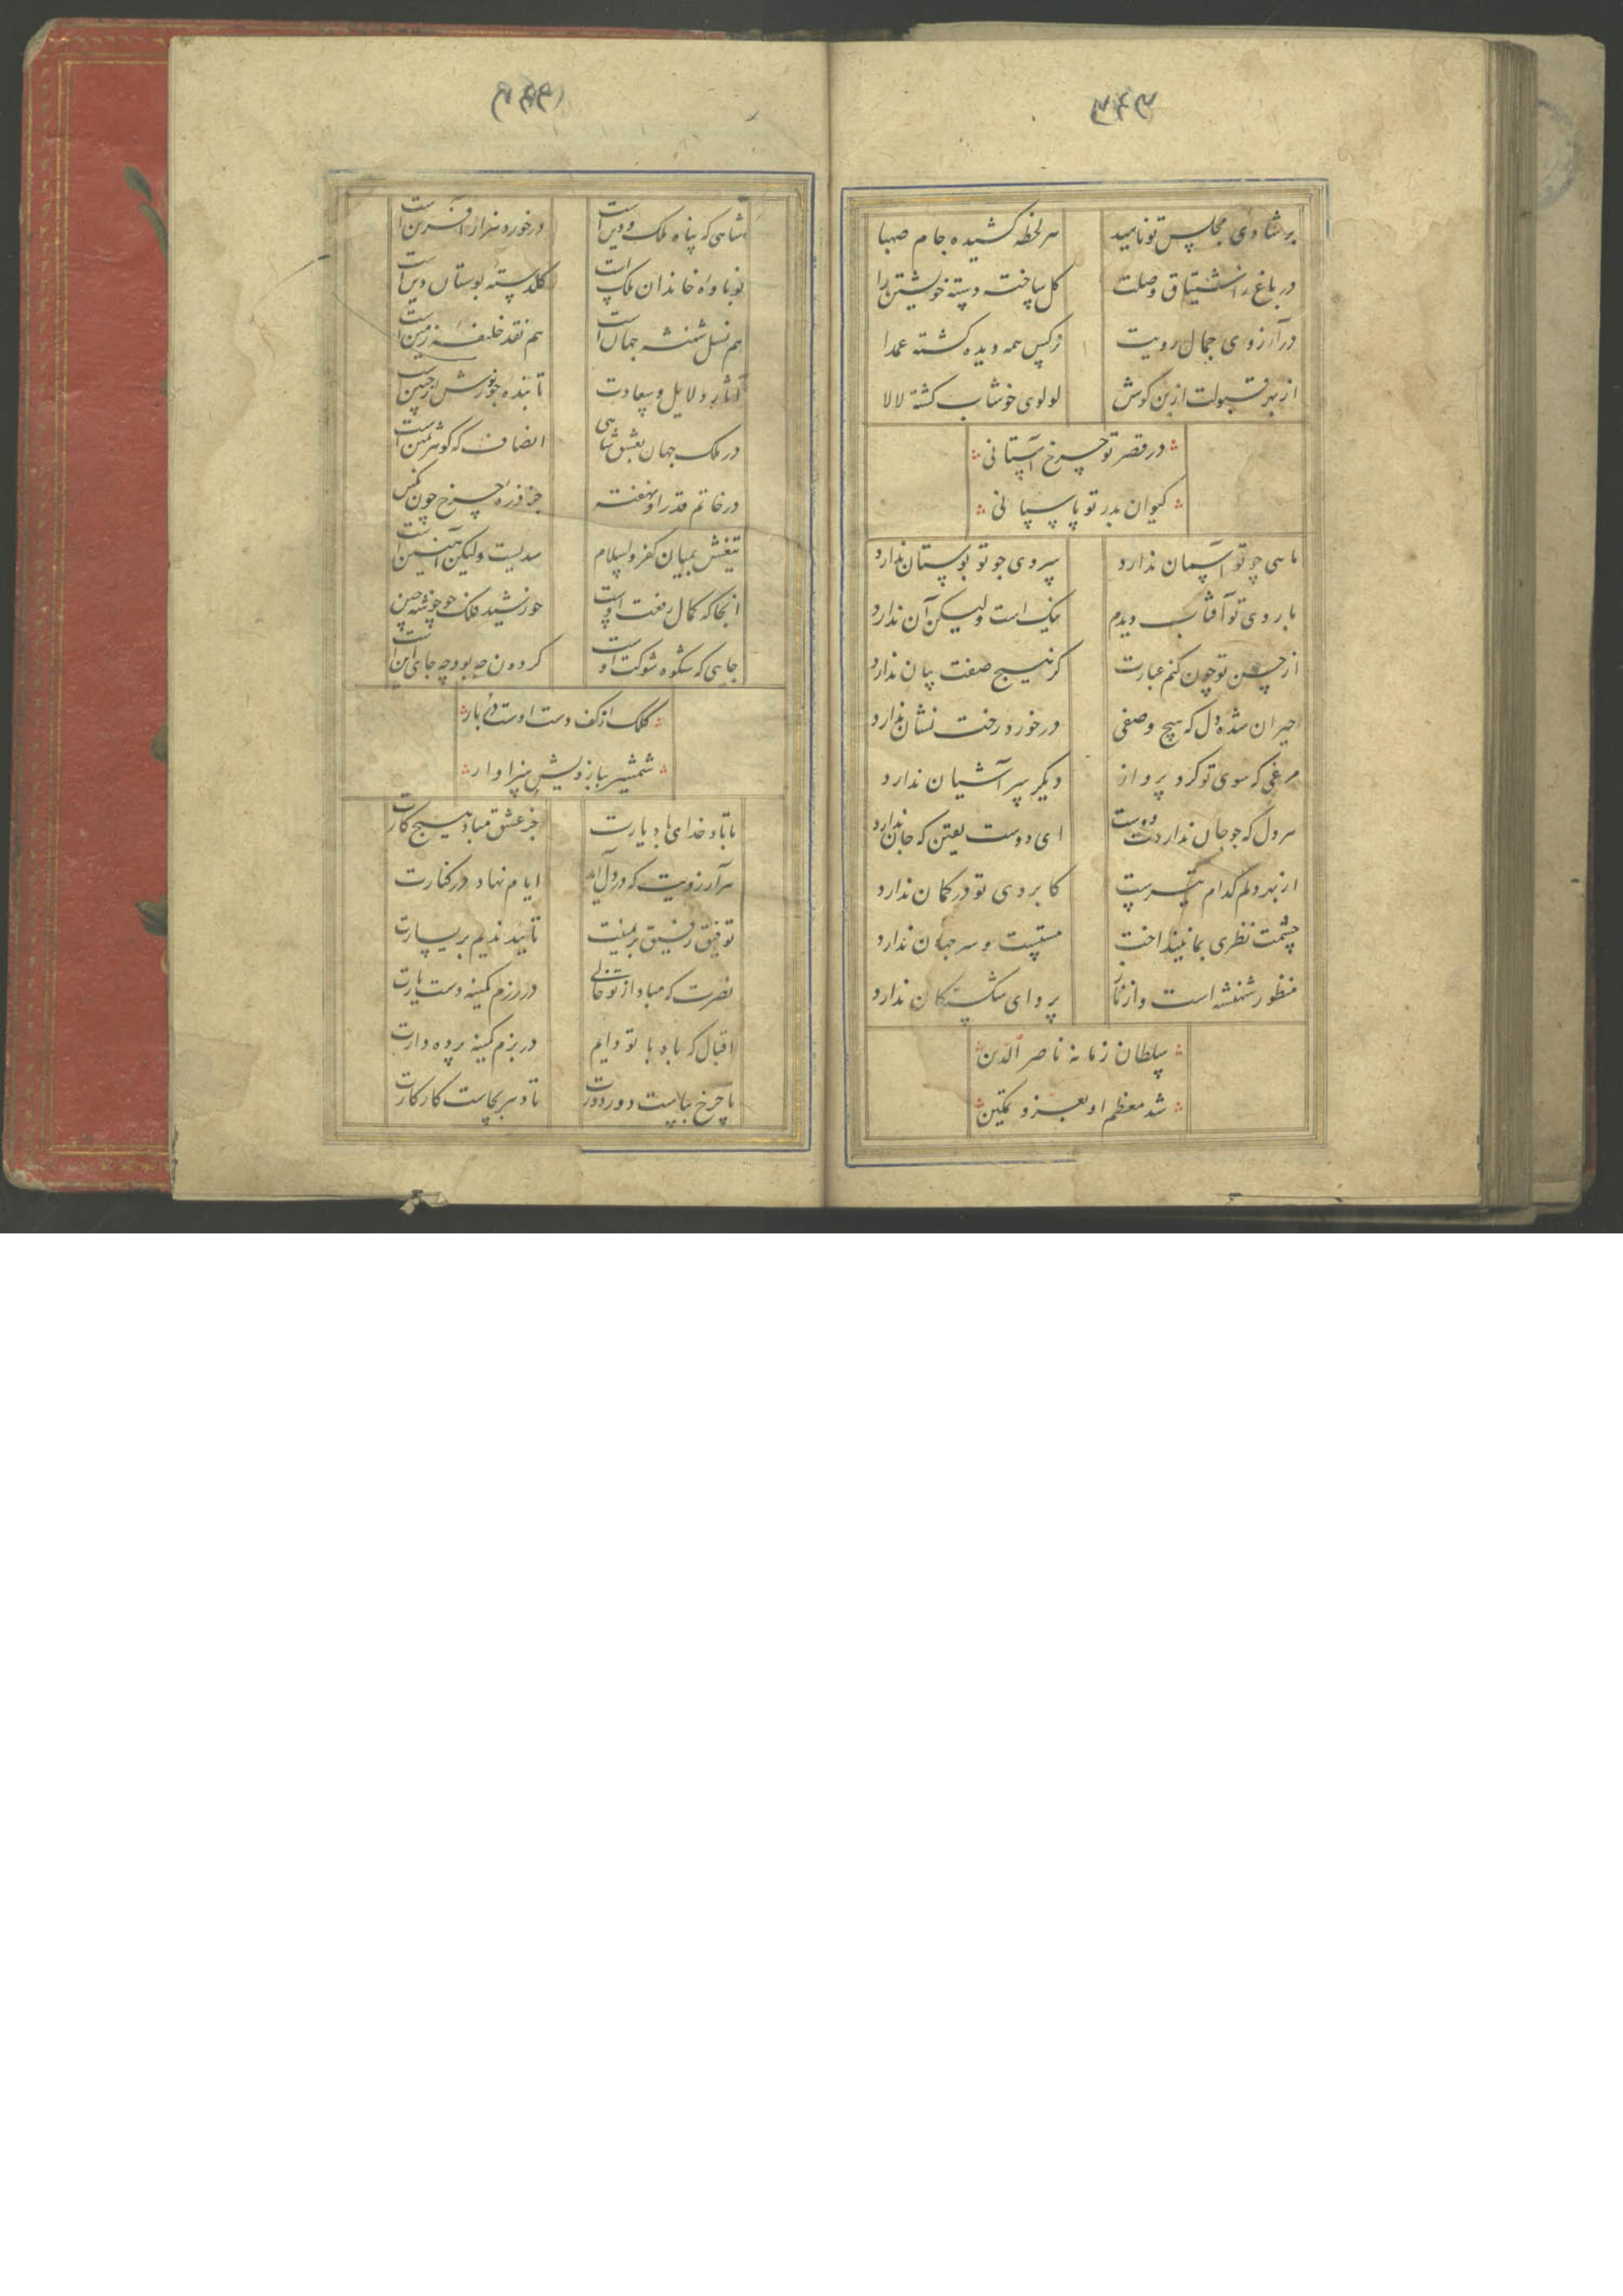 بر شادی مجلس تو ناهید
هر لحظه کشیده جام صهبا
در باغ ز اشتیاق وصلت
گل ساخته دسته خویشتن را
در آرزوی جمال رویت
نرگس همه دیده گشته عمدا
از بهر قبولت از بن گوش
لولوی خوشاب گشته لالا
در قصر تو چرخ آستانی
کیوان بدر تو پاسبانی
ماهی چو تو آسمان ندارد
سروی چو تو بوستان ندارد
با روی تو آفتاب دیدم
نیک است ولیکن آن ندارد
از حسن تو چون کنم عبارت
کز هیچ صفت بیان ندارد
حیران شده دل که هیچ وصفی
در خورد رخت نشان ندارد
مرغی که سوی تو کرد پرواز
دیگر سر آشیان ندارد
هر دل که چو جان نداردت دوست
ای دوست یقین که جان ندارد
از بهر دلم کدام تیرست
کابروی تو در کمان ندارد
چشمت نظری بما نینداخت
مستست و سر جهان ندارد
منظور شهنشه است و از ناز
پروای شکستگان ندارد
سلطان زمانه ناصر الدین
شد معظم او بعز و تمکین
شاهی که پناه ملک و دین است
در خورد هزار آفرین است
نوباوه خاندان ملک است
گلدسته بوستان دین است
هم نسل شهنشه جهان است
هم نقد خلیفه زمین است
آثار دلایل و سعادت
تابنده چو نورش از جبین است
در ملک جهان بعشق شاهی
انصاف که گوهر ثمین است
در خاتم قدر او نهفته
جز ذره چرخ چون نگین
تیغش بمیان کفر و اسلام
سدیست ولیکن آهنین است
آنجا که کمال رفعت اوست
خورشید فلک چو خوشه چین
جایی که شکوه شوکت اوست
گردون چه بود چه جای این است
کلک از کف دست اوست دربار
شمشیر ببازویش سزاوار
تا باد خدای باد یارت
جز عشق مباد هیچ کارت
هر آرزویت که در دل آید
ایام نهاد در کنارت
توفیق رفیق بر یمینت
تأیید ندیم بر یسارت
نصرت که مباد از تو خالی
در رزم کمینه دست یارت
اقبال که باد با تو دایم
در بزم کمینه پرده دارت
تا چرخ بپاست دور دورت
تا دهر بجاست کار کارت